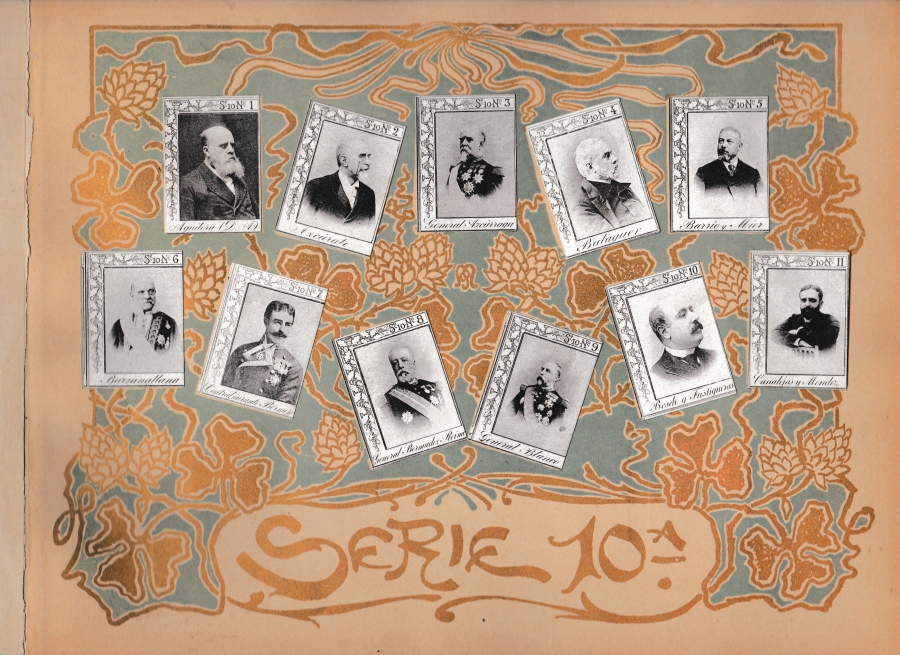 S.10 Nº 1
Aguilera (D. A)
S.10 Nº 2
Azcárate
S.10 Nº 3
General Azcárraga
S.10 Nº 4
Balaguer
S.10 Nº 5
Barrio y Mier
S.10 Nº 6
Barzanallana
S.10 Nº 7
Contralmirante Bermejo
S.10 Nº 8
General Bermudez Reina
S.10 Nº 9
General Blanco
S.10 Nº 10
Bosch y Fustigueras
S.10 Nº 11
Canalejas y Mendez
SERIE 10ª.